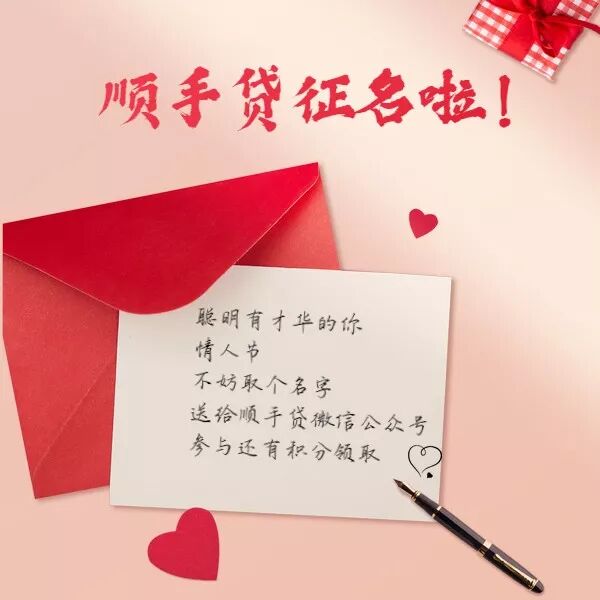 顺手贷征名啦！
聪明有才华的你
情人节
不妨取个名字
送给顺手贷微信公众号
参与还有积分领取